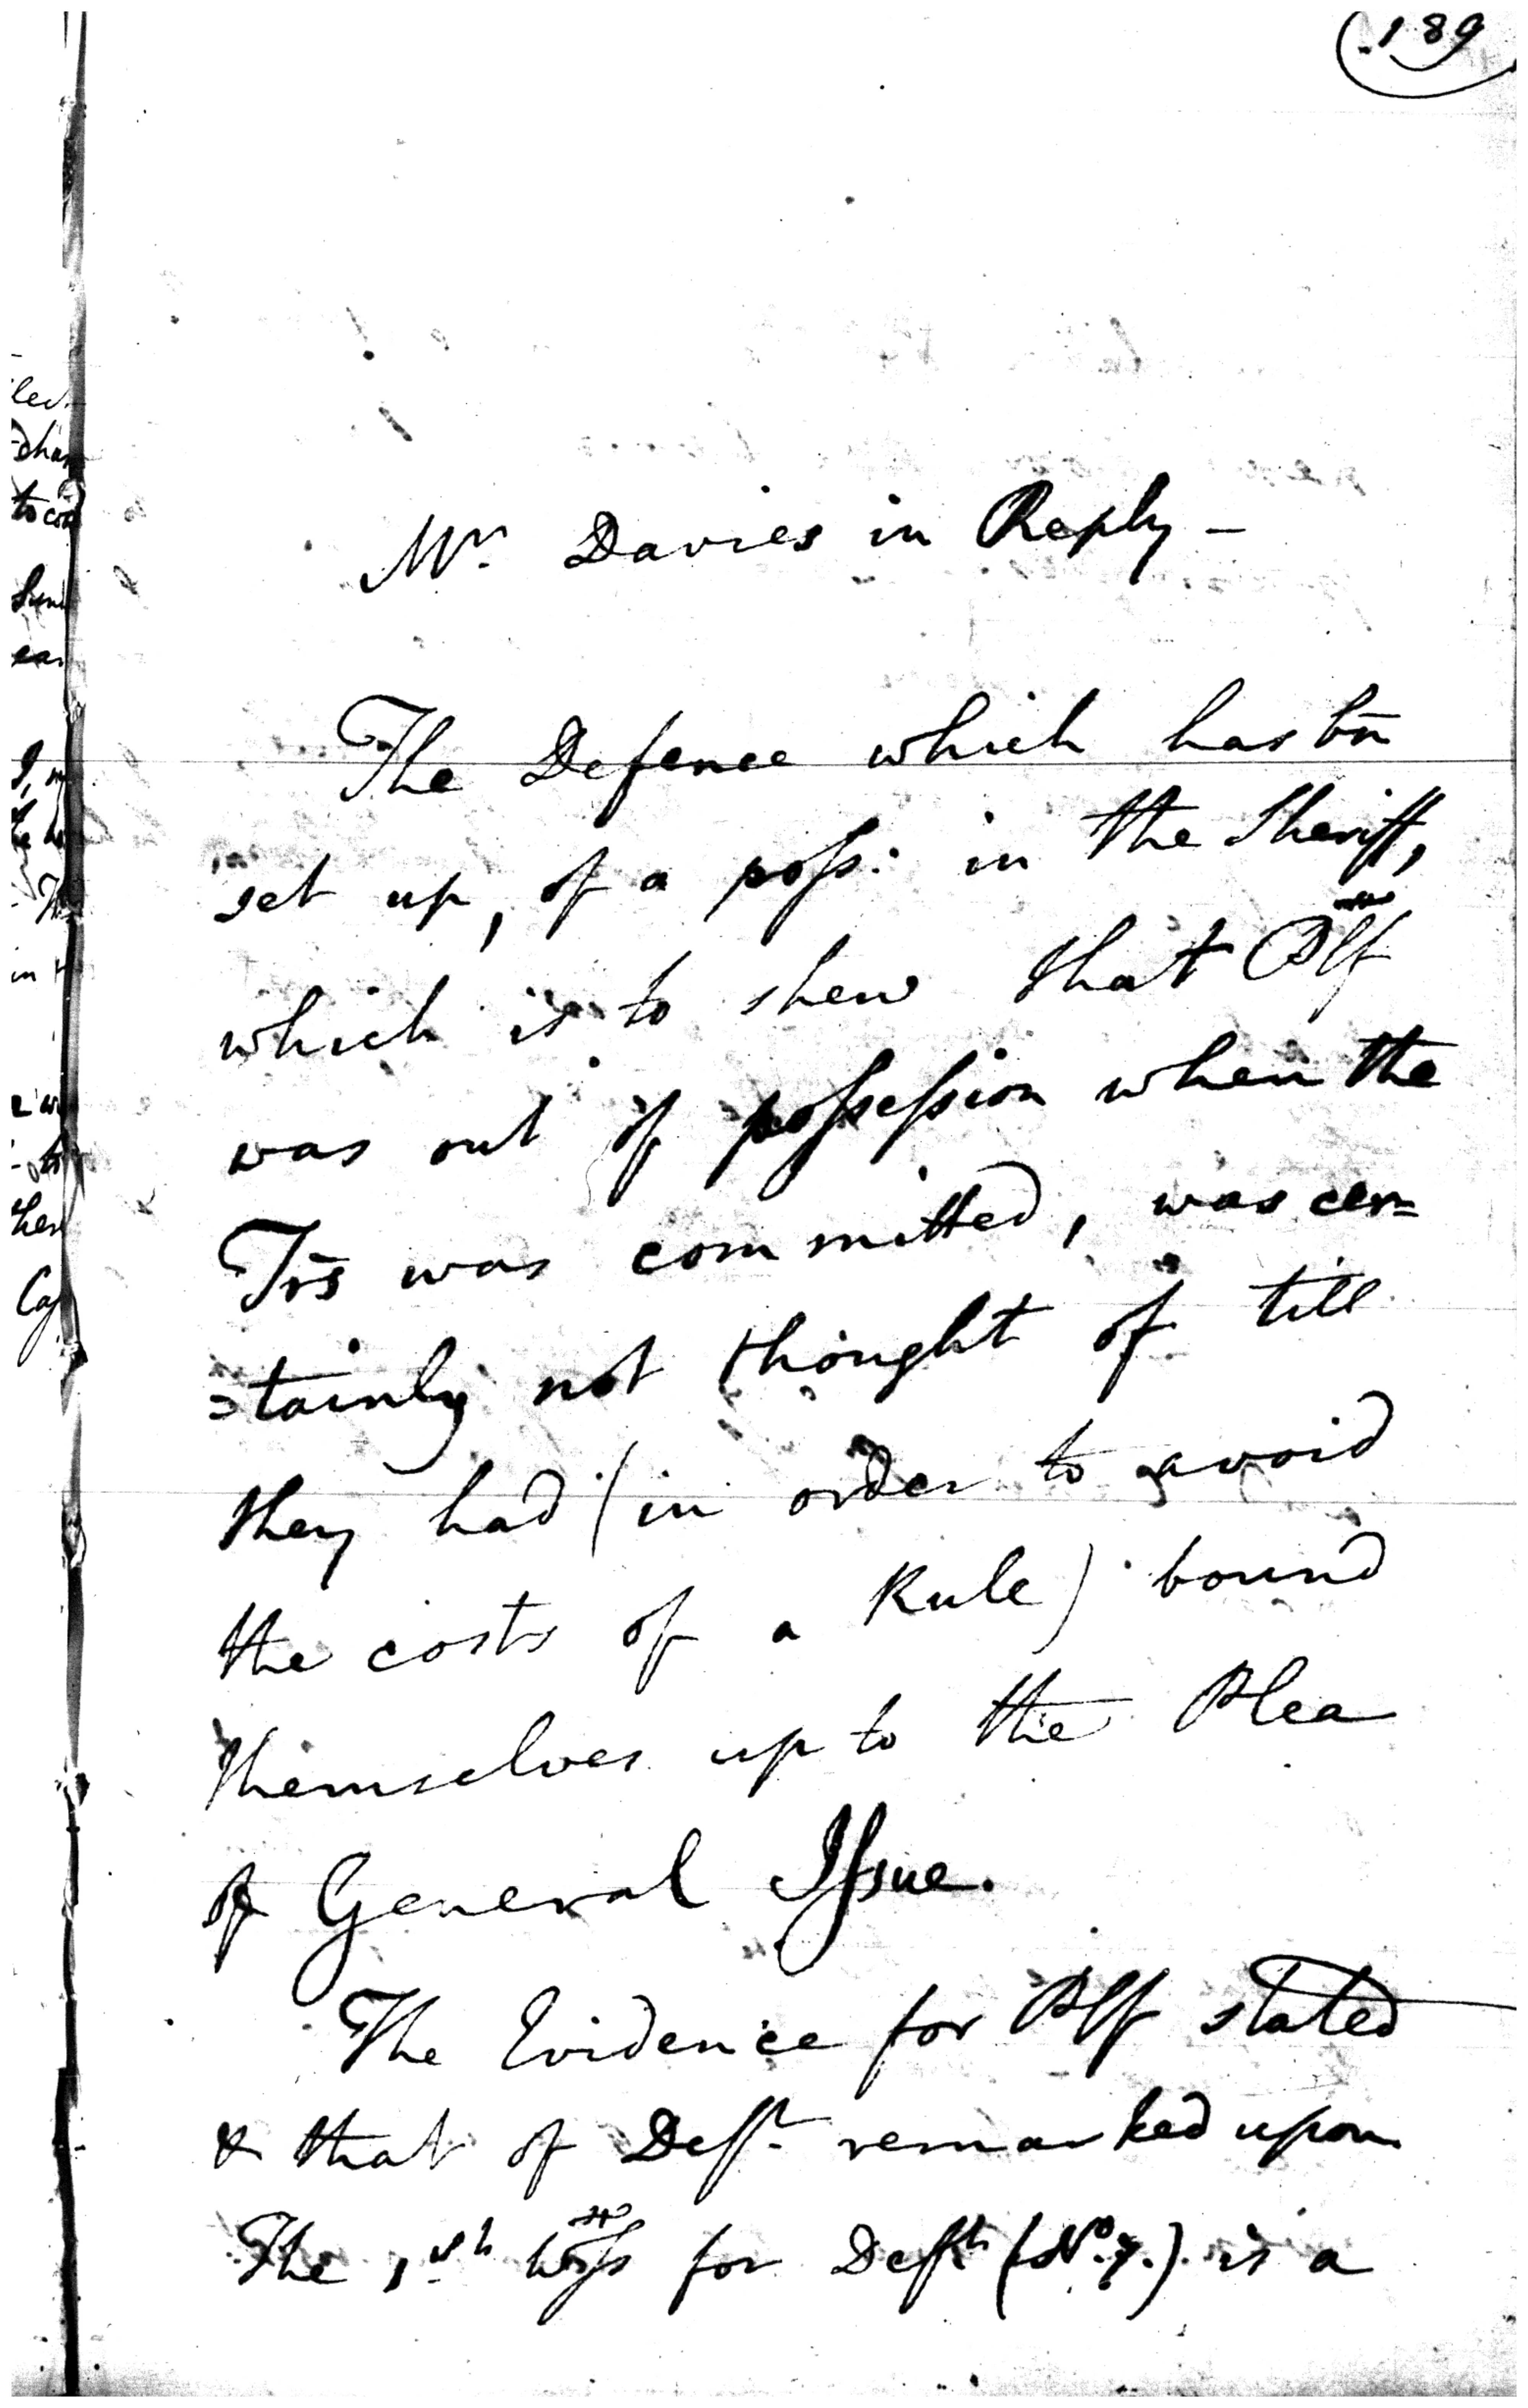 189
Mr. Davies in Reply -
The Defence which has bn̄
set up, of a poſs: in the Sheriff,
which is to shew that Plf
was out of poſseſsion when the
Trs̄ was committed, was cer=
=tainly not thought of till
they had (in order to avoid
the costs of a Rule) bound
themselves up to the Plea
of General Iſsue.
The Evidence for Plf stated
& that of Deft. remarked upon
The 1.st Wiſs for Defts (No. 7.) is a